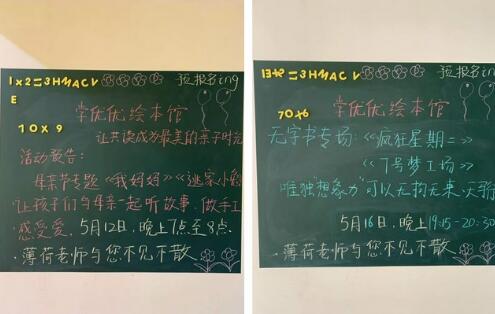 预报名ing
E
学优优绘本馆
10X9
让共读成为最美的亲子时光
活动预告:
母亲节专题《我妈妈》《逃家小兔
让孩子们与母亲一起听故事,做手工
感受爱.5月12日,晚上7点至8点.
·薄荷老师与您不见不散
预报名ing
学优优绘本馆
70x6
无字书专场:《疯狂星期二》
《7号梦工场》
唯独"想象力"可以无拘无束.天骑
5月16日,晚上19:15-20:30
·薄荷老师与您不见不散